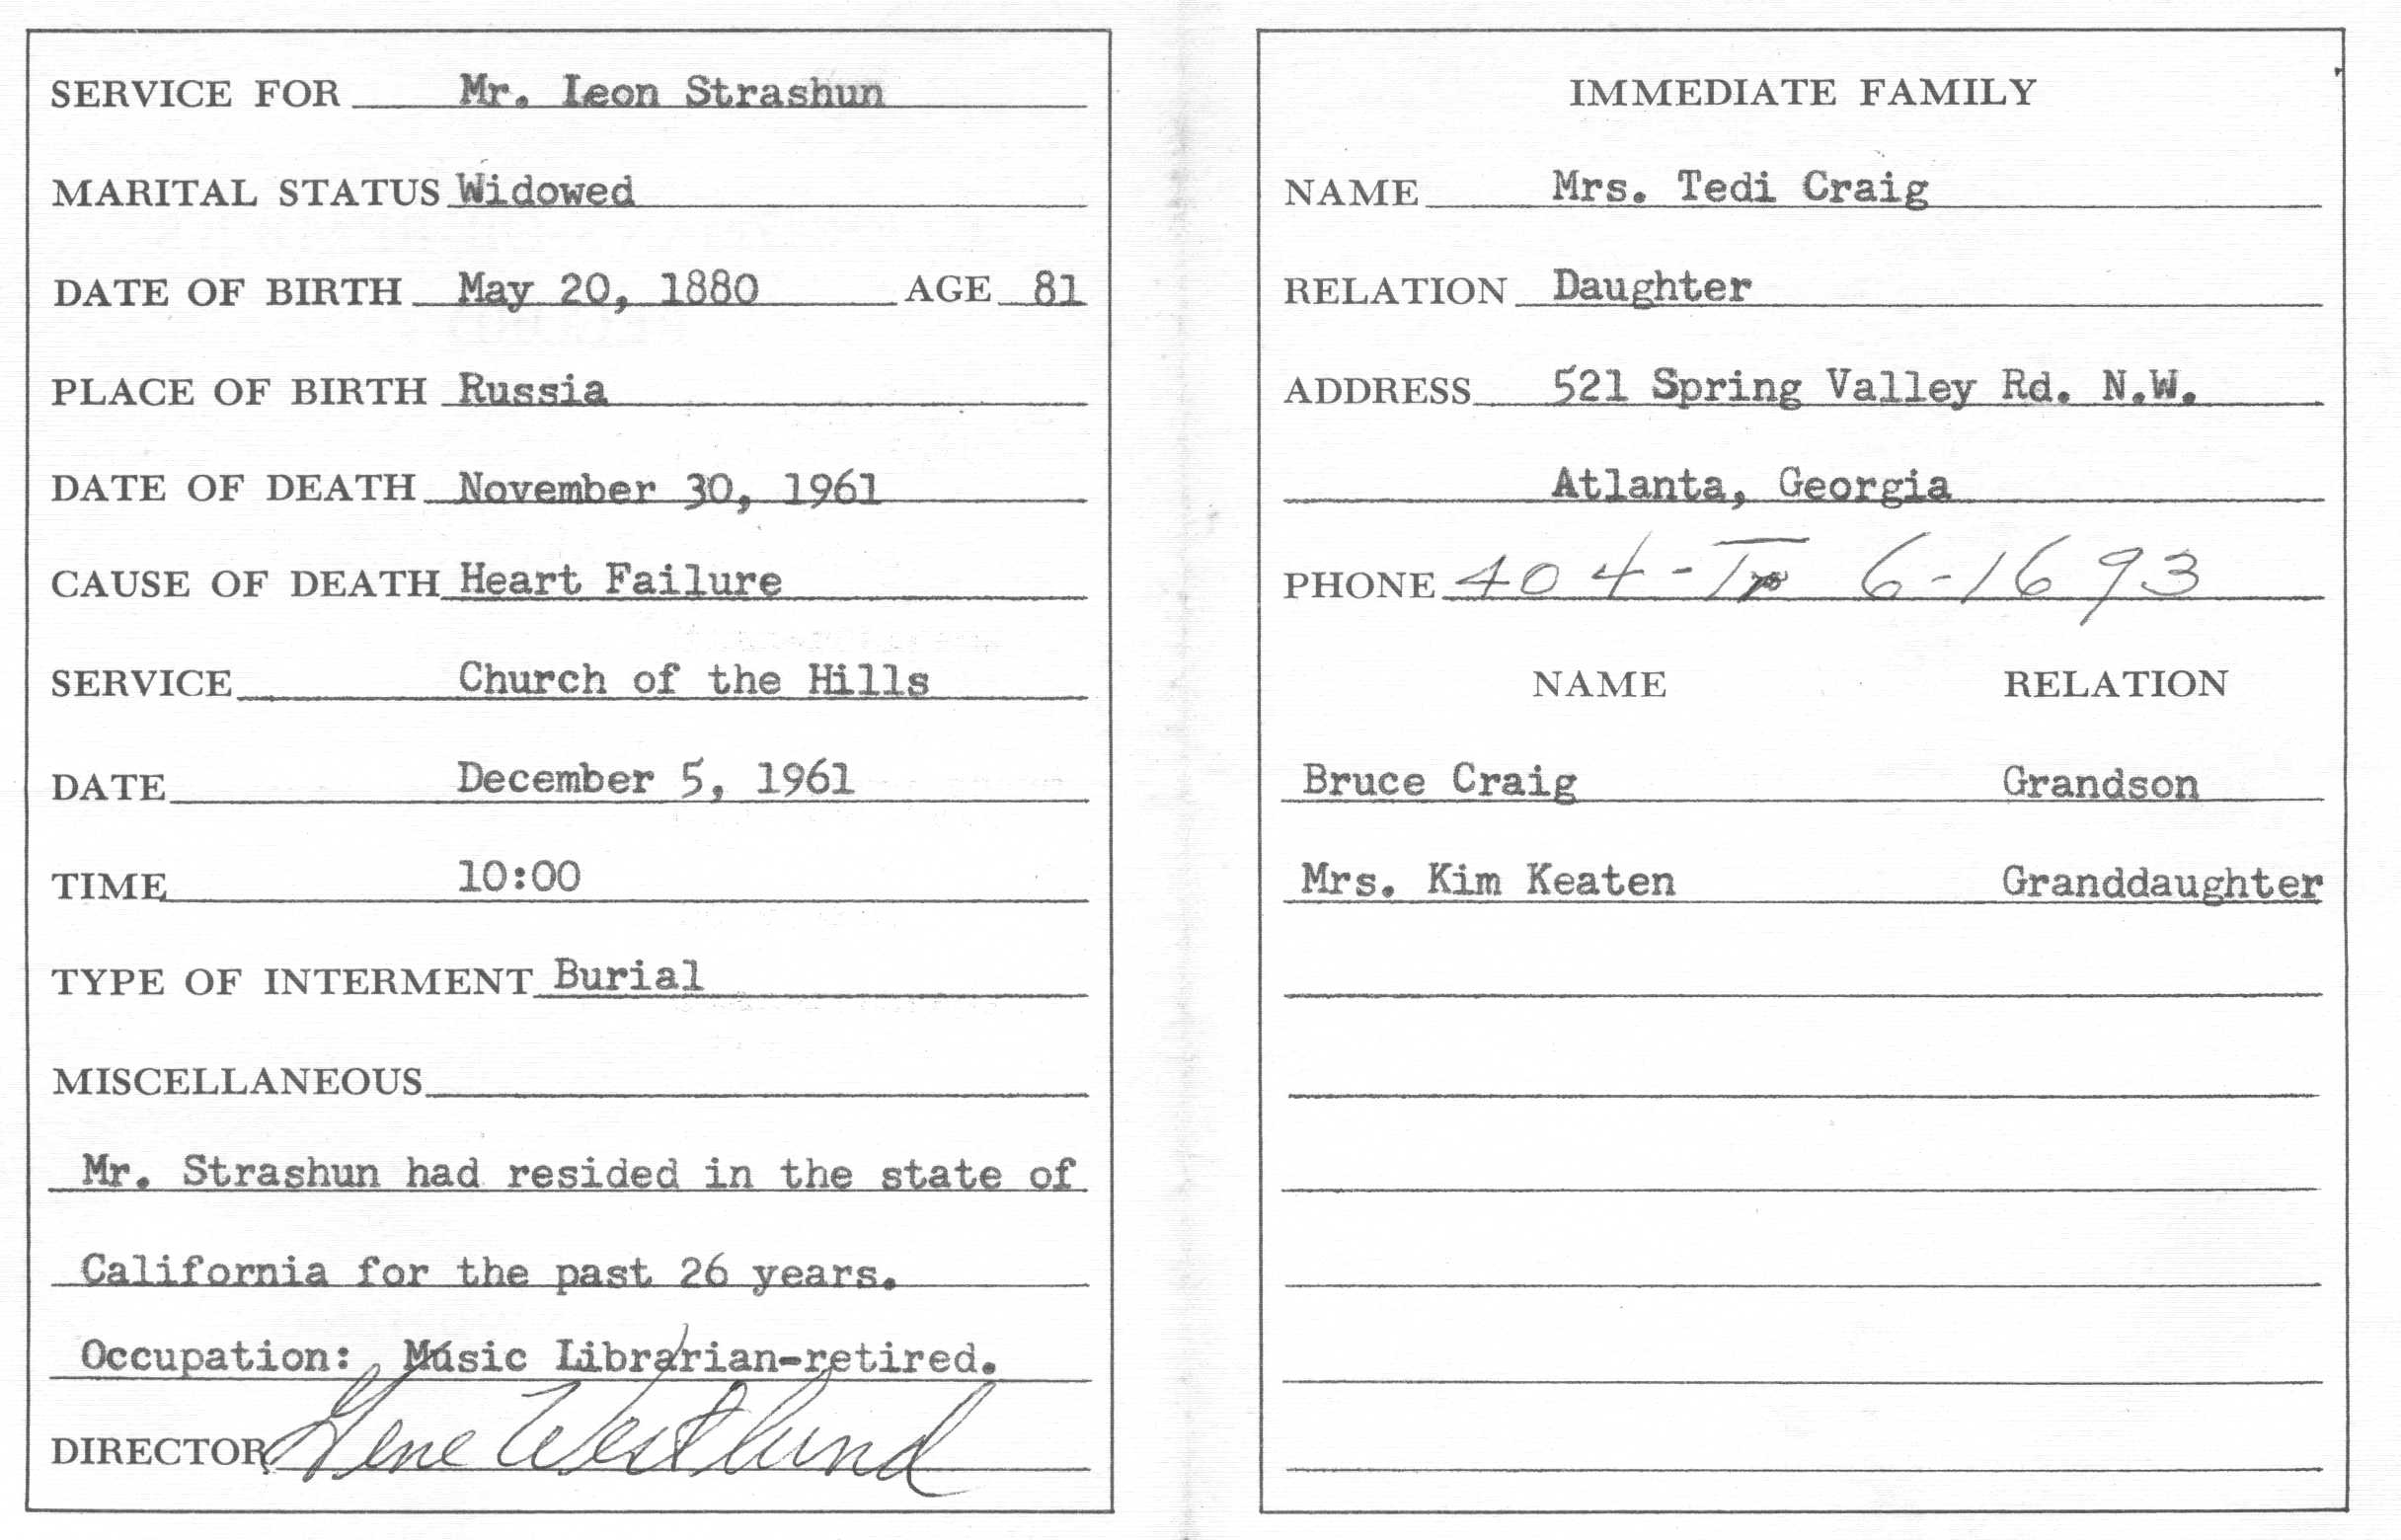 SERVICE FOR Mr. Leon Strashun
MARITAL STATUS Widowed
DATE OF BIRTH May 20, 1880 AGE 81
PLACE OF BIRTH Russia
DATE OF DEATH November 30, 1961
CAUSE OF DEATH Heart Failure
SERVICE Church of the Hills
DATE December 5, 1961
TIME 10:00
TYPE OF INTERMENT Burial
MISCELLANEOUS
Mr. Strashun had resided in the state of
California for the past 26 years.
Occupation: Music Librarian-retired.
DIRECTOR Gene Westlund
IMMEDIATE FAMILY
NAME Mrs. Tedi Craig
RELATION Daughter
ADDRESS 521 Spring Valley Rd. N.W.
Atlanta, Georgia
PHONE 404- 6-1693
NAME RELATION
Bruce Craig Grandson
Mrs. Kim Keaten Granddaughter